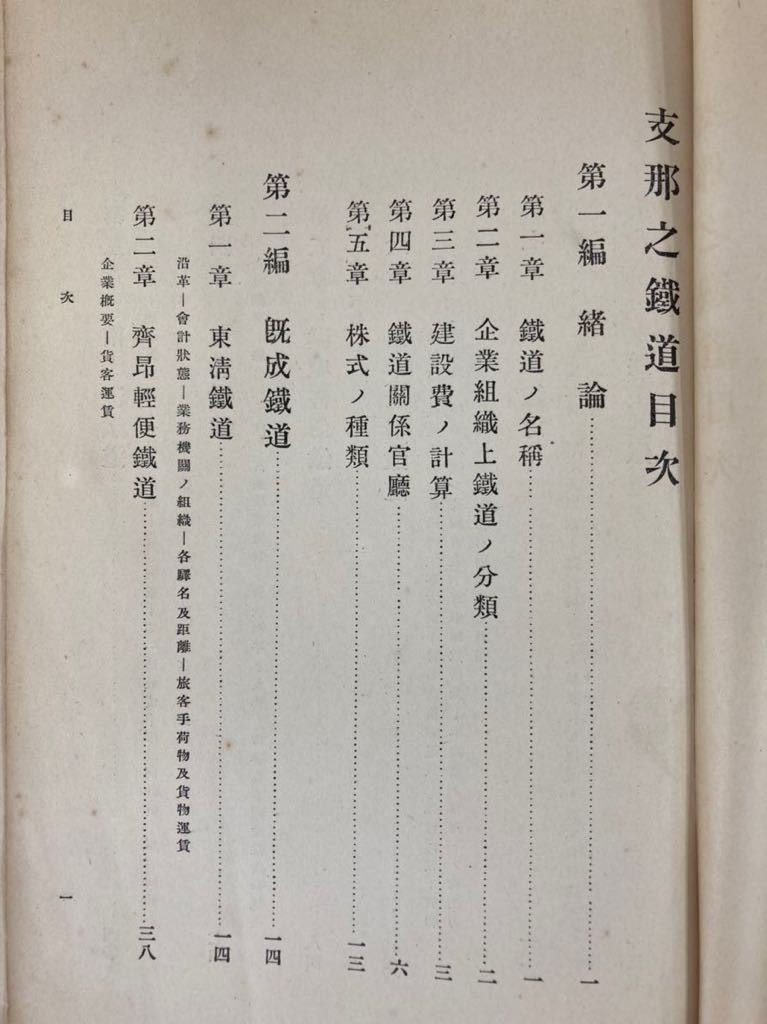 支那之鐵道目次
第一編 緒論……一
第一章 鐵道ノ名稱……一
第二章 企業組織上鐵道ノ分類……二
第三章 建設費ノ計算……三
第四章 鐵道關係官廳……六
第五章 株式ノ種類……一三
第二編 既成鐵道……一四
第一章 東淸鐵道……一四
沿革―會計狀態―業務機關ノ組織―各驛名及距離―旅客手荷物及貨物運賃
第二章 齊昂輕便鐵道……三八
企業概要―貨客運賃
目次 一